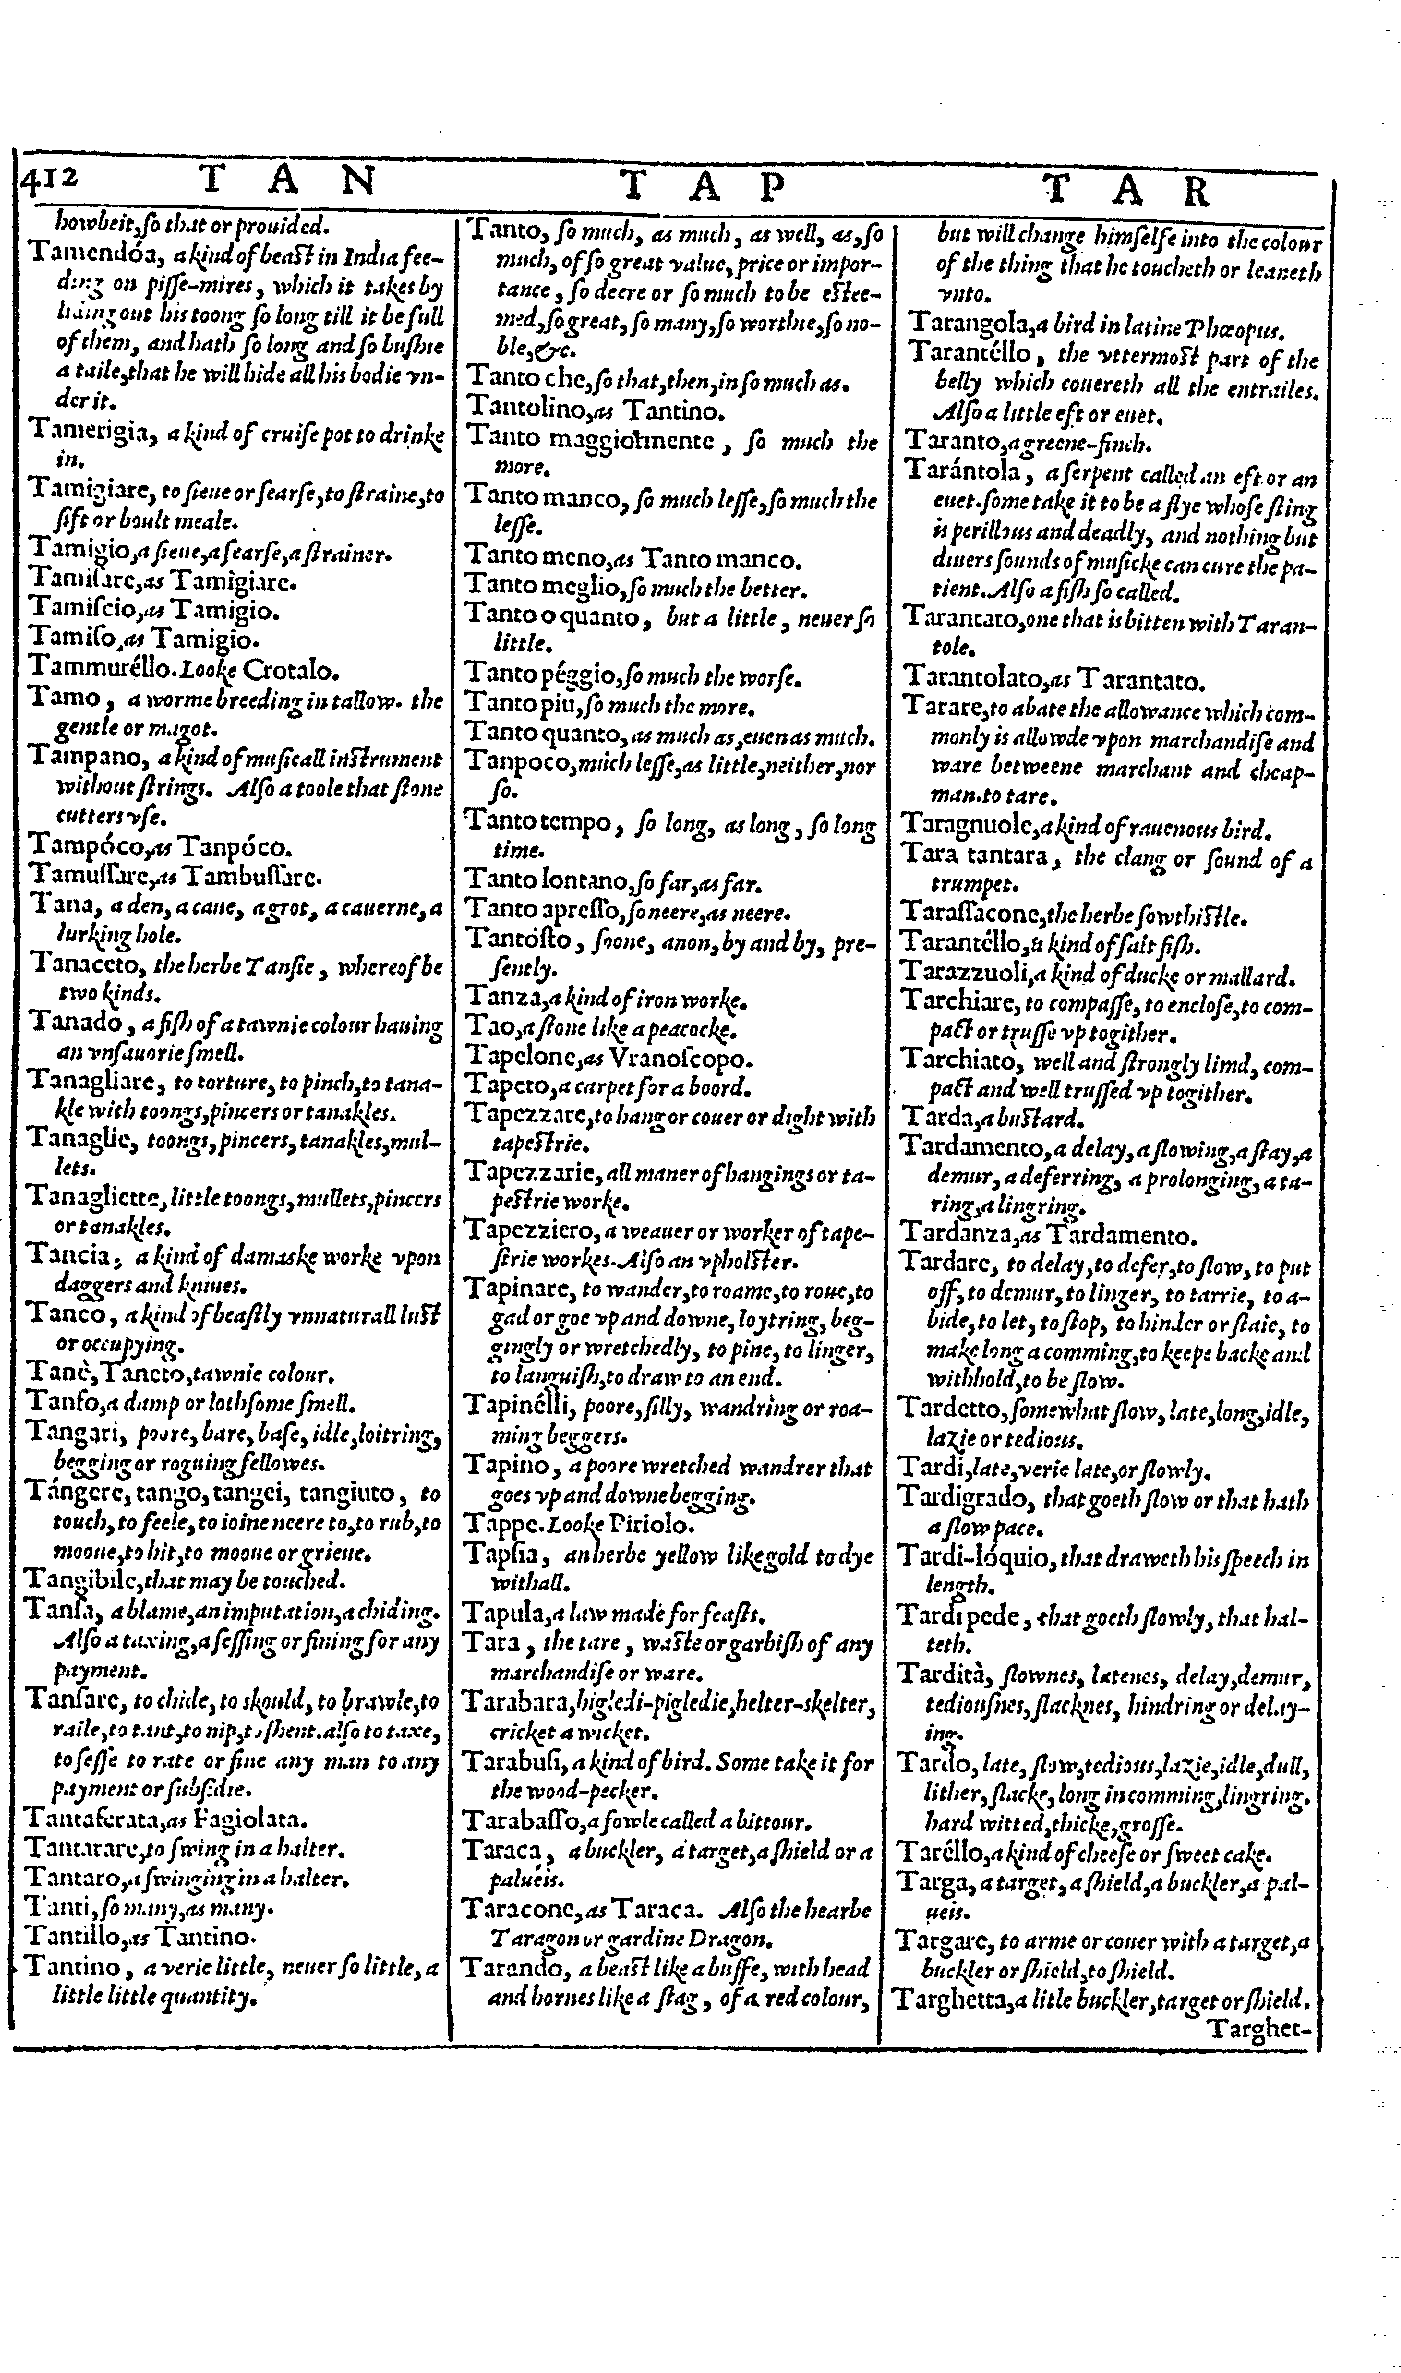 412 T A N T A P T A R
howbeit, ſo that or prouided.
Tamendóa, a kind of beaſt in India fee-
ding on piſſe-mires, which it takes by
laing out his toong ſo long till it be full
of them, and hath ſo long and ſo buſhie
a taile, that he will hide all his bodie vn-
der it.
Tamerigia, a kind of cruiſe pot to drinke
in.
Tamigiare, to ſieue or ſearſe, to ſtraine, to
ſift or boult meale.
Tamigio, a ſieue, a ſearſe, a ſtrainer.
Tamiſare, as Tamigiare.
Tamiſcio, as Tamigio.
Tamiſo, as Tamigio.
Tammuréllo. Looke Crotalo.
Tamo, a worme breeding in tallow. the
gentle or magot.
Tampano, a kind of muſicall inſtrument
without ſtrings. Alſo a toole that ſtone
cutters vſe.
Tampóco, as Tanpóco.
Tamuſſare, as Tambuſſare.
Tana, a den, a caue, a grot, a cauerne, a
lurking hole.
Tanaceto, the herbe Tanſie, whereof be
two kinds.
Tanado, a fiſh of a tawnie colour hauing
an vnſauorie ſmell.
Tanagliare, to torture, to pinch, to tana-
kle with toongs, pincers or tanakles.
Tanaglie, toongs, pincers, tanakles, mul-
lets.
Tanagliette, little toongs, mullets, pincers
or tanakles.
Tancia, a kind of damaske worke vpon
daggers and kniues.
Tanco, a kind of beaſtly vnnaturall luſt
or occupying.
Tanè, Taneto, tawnie colour.
Tanfo, a damp or lothſome ſmell.
Tangari, poore, bare, baſe, idle, loitring,
begging or roguing fellowes.
Tángere, tango, tangei, tangiuto, to
touch, to feele, to ioine neere to, to rub, to
mooue, to hit, to mooue or grieue.
Tangibile, that may be touched.
Tanſa, a blame, an imputation, a chiding.
Alſo a taxing, a ſeſſing or fining for any
payment.
Tanſare, to chide, to skould, to brawle, to
raile, to tant, to nip, to ſhent. alſo to taxe,
to ſeſſe to rate or fine any man to any
payment or ſubſidie.
Tantaferata, as Fagiolata.
Tantarare, to ſwing in a halter.
Tantaro, a ſwinging in a halter.
Tanti, ſo many, as many.
Tantillo, as Tantino.
Tantino, a verie little, neuer ſo little, a
little little quantity.
Tanto, ſo much, as much, as well, as, ſo
much, of ſo great value, price or impor-
tance, ſo deere or ſo much to be eſtee-
med, ſo great, ſo many, ſo worthie, ſo no-
ble, &c.
Tanto che, ſo that, then, in ſo much as.
Tantolino, as Tantino.
Tanto maggiormente, ſo much the
more.
Tanto manco, ſo much leſſe, ſo much the
leſſe.
Tanto meno, as Tanto manco.
Tanto meglio, ſo much the better.
Tanto o quanto, but a little, neuer ſo
little.
Tanto péggio, ſo much the worſe.
Tanto piu, ſo much the more.
Tanto quanto, as much as, euen as much.
Tanpoco, much leſſe, as little, neither, nor
ſo.
Tanto tempo, ſo long, as long, ſo long
time.
Tanto lontano, ſo far, as far.
Tanto apreſſo, ſo neere, as neere.
Tantóſto, ſoone, anon, by and by, pre-
ſently.
Tanza, a kind of iron worke.
Tao, a ſtone like a peacocke.
Tapelone, as Vranoſcopo.
Tapeto, a carpet for a boord.
Tapezzare, to hang or couer or dight with
tapeſtrie.
Tapezzarie, all maner of hangings or ta-
peſtrie worke.
Tapezziero, a weauer or worker of tape-
ſtrie workes. Alſo an vpholſter.
Tapinare, to wander, to roame, to roue, to
gad or goe vp and downe, loytring, beg-
gingly or wretchedly, to pine, to linger,
to languiſh, to draw to an end.
Tapinélli, poore, ſilly, wandring or roa-
ming beggers.
Tapino, a poore wretched wandrer that
goes vp and downe begging.
Tappe. Looke Piriolo.
Tapſia, an herbe yellow like gold to dye
withall.
Tapula, a law made for feaſts.
Tara, the tare, waſte or garbiſh of any
marchandiſe or ware.
Tarabara, higledi-pigledie, helter-skelter,
cricket a wicket.
Tarabuſi, a kind of bird. Some take it for
the wood-pecker.
Tarabaſſo, a fowle called a bittour.
Taraca, a buckler, a target, a ſhield or a
palueis.
Taracone, as Taraca. Alſo the hearbe
Taragon or gardine Dragon.
Tarando, a beaſt like a buffe, with head
and hornes like a ſtag, of a red colour,
but will change himſelfe into the colour
of the thing that he toucheth or leaneth
vnto.
Tarangola, a bird in latine Phœopus.
Tarantéllo, the vttermoſt part of the
belly which couereth all the entrailes.
Alſo a little eft or euet.
Taranto, a greene-finch.
Tarántola, a ſerpent called an eft or an
euet. ſome take it to be a flye whoſe ſting
is perillous and deadly, and nothing but
diuers ſounds of muſicke can cure the pa-
tient. Alſo a fiſh ſo called.
Tarantato, one that is bitten with Taran-
tole.
Tarantolato, as Tarantato.
Tarare, to abate the allowance which com-
monly is allowde vpon marchandiſe and
ware betweene marchant and cheap-
man. to tare.
Taragnuole, a kind of rauenous bird.
Tara tantara, the clang or ſound of a
trumpet.
Taraſſacone, the herbe ſowthiſtle.
Tarantéllo, a kind of ſalt fiſh.
Tarazzuoli, a kind of ducke or mallard.
Tarchiare, to compaſſe, to encloſe, to com-
pact or truſſe vp togither.
Tarchiato, well and ſtrongly limd, com-
pact and well truſſed vp togither.
Tarda, a buſtard.
Tardamento, a delay, a ſlowing, a ſtay, a
demur, a deferring, a prolonging, a ta-
ring, a lingring.
Tardanza, as Tardamento.
Tardare, to delay, to defer, to ſlow, to put
off, to demur, to linger, to tarrie, to a-
bide, to let, to ſtop, to hinder or ſtaie, to
make long a comming, to keepe backe and
withhold, to be ſlow.
Tardetto, ſomewhat ſlow, late, long, idle,
lazie or tedious.
Tardi, late, verie late, or ſlowly.
Tardigrado, that goeth ſlow or that hath
a ſlow pace.
Tardi-lóquio, that draweth his ſpeech in
length.
Tardi pede, that goeth ſlowly, that hal-
teth.
Tardità, ſlownes, latenes, delay, demur,
tediouſnes, ſlacknes, hindring or delay-
ing.
Tardo, late, ſlow, tedious, lazie, idle, dull,
lither, ſlacke, long in comming, lingring.
hard witted, thicke, groſſe.
Taréllo, a kind of cheeſe or ſweet cake.
Targa, a target, a ſhield, a buckler, a pal-
ueis.
Targare, to arme or couer with a target, a
buckler or ſhield, to ſhield.
Targhetta, a litle buckler, target or ſhield.
Targhet-